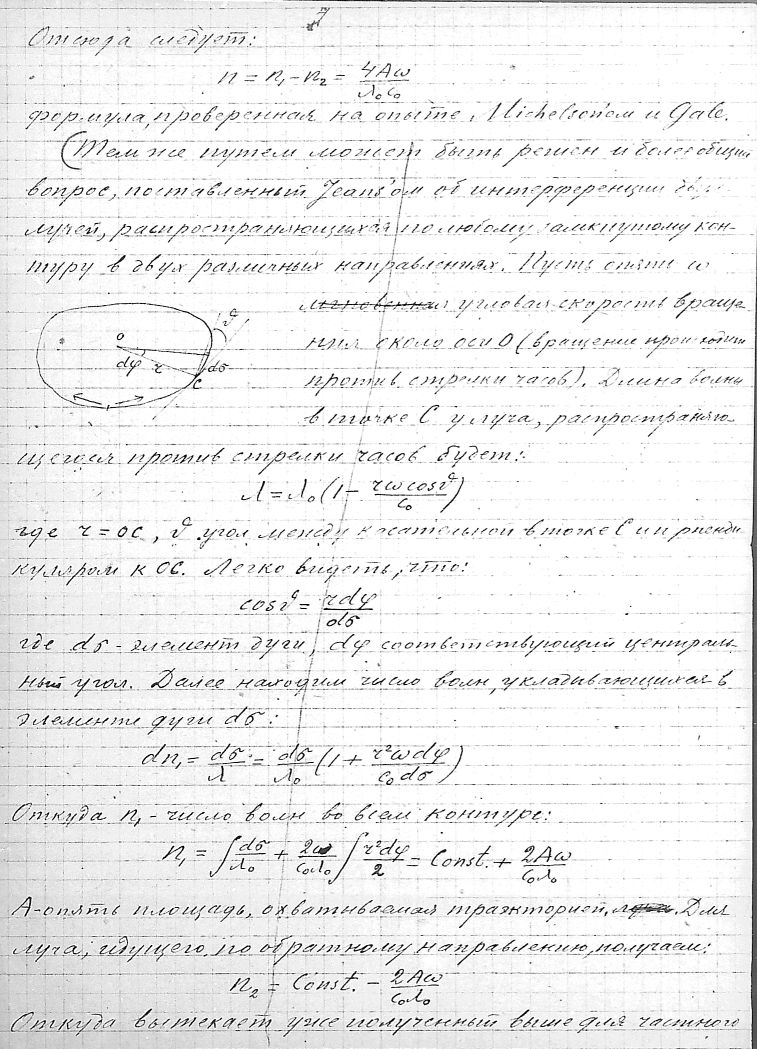 7
Отсюда следует:
n = n₁ - n₂ = 4Aω / λ₀c₀
формула, проверенная на опыте Michelson'ом и Gale.
(Тем же путем может быть решен и более общий
вопрос, поставленный Jeans'ом об интерференции двух
лучей, распространяющихся по любому замкнутому кон-
туру в двух различных направлениях. Пусть опять ω
мгновенная угловая скорость враще-
ния около оси O (вращение происходит
против стрелки часов). Длина волны
в точке C у луча, распространяю-
O dφ r C dσ ϑ
щегося против стрелки часов будет:
λ = λ₀ (1 - rω cosϑ / c₀)
где r = OC, ϑ угол между касательной в точке C и перпенди
куляром к OC. Легко видеть, что:
cosϑ = rdφ / dσ
где dσ - элемент дуги, dφ соответствующий централь-
ный угол. Далее находим число волн, укладывающихся в
элементе дуги dσ:
dn₁ = dσ / λ = dσ / λ₀ (1 + r²ωdφ / c₀dσ)
Откуда n₁ - число волн во всем контуре:
n₁ = ∫ dσ / λ₀ + 2ω / c₀λ₀ ∫ r²dφ / 2 = Const. + 2Aω / c₀λ₀
A - опять площадь, охватываемая траэкторией луча. Для
луча, идущего по обратному направлению, получаем:
n₂ = Const. - 2Aω / c₀λ₀
Откуда вытекает уже полученный выше для частного